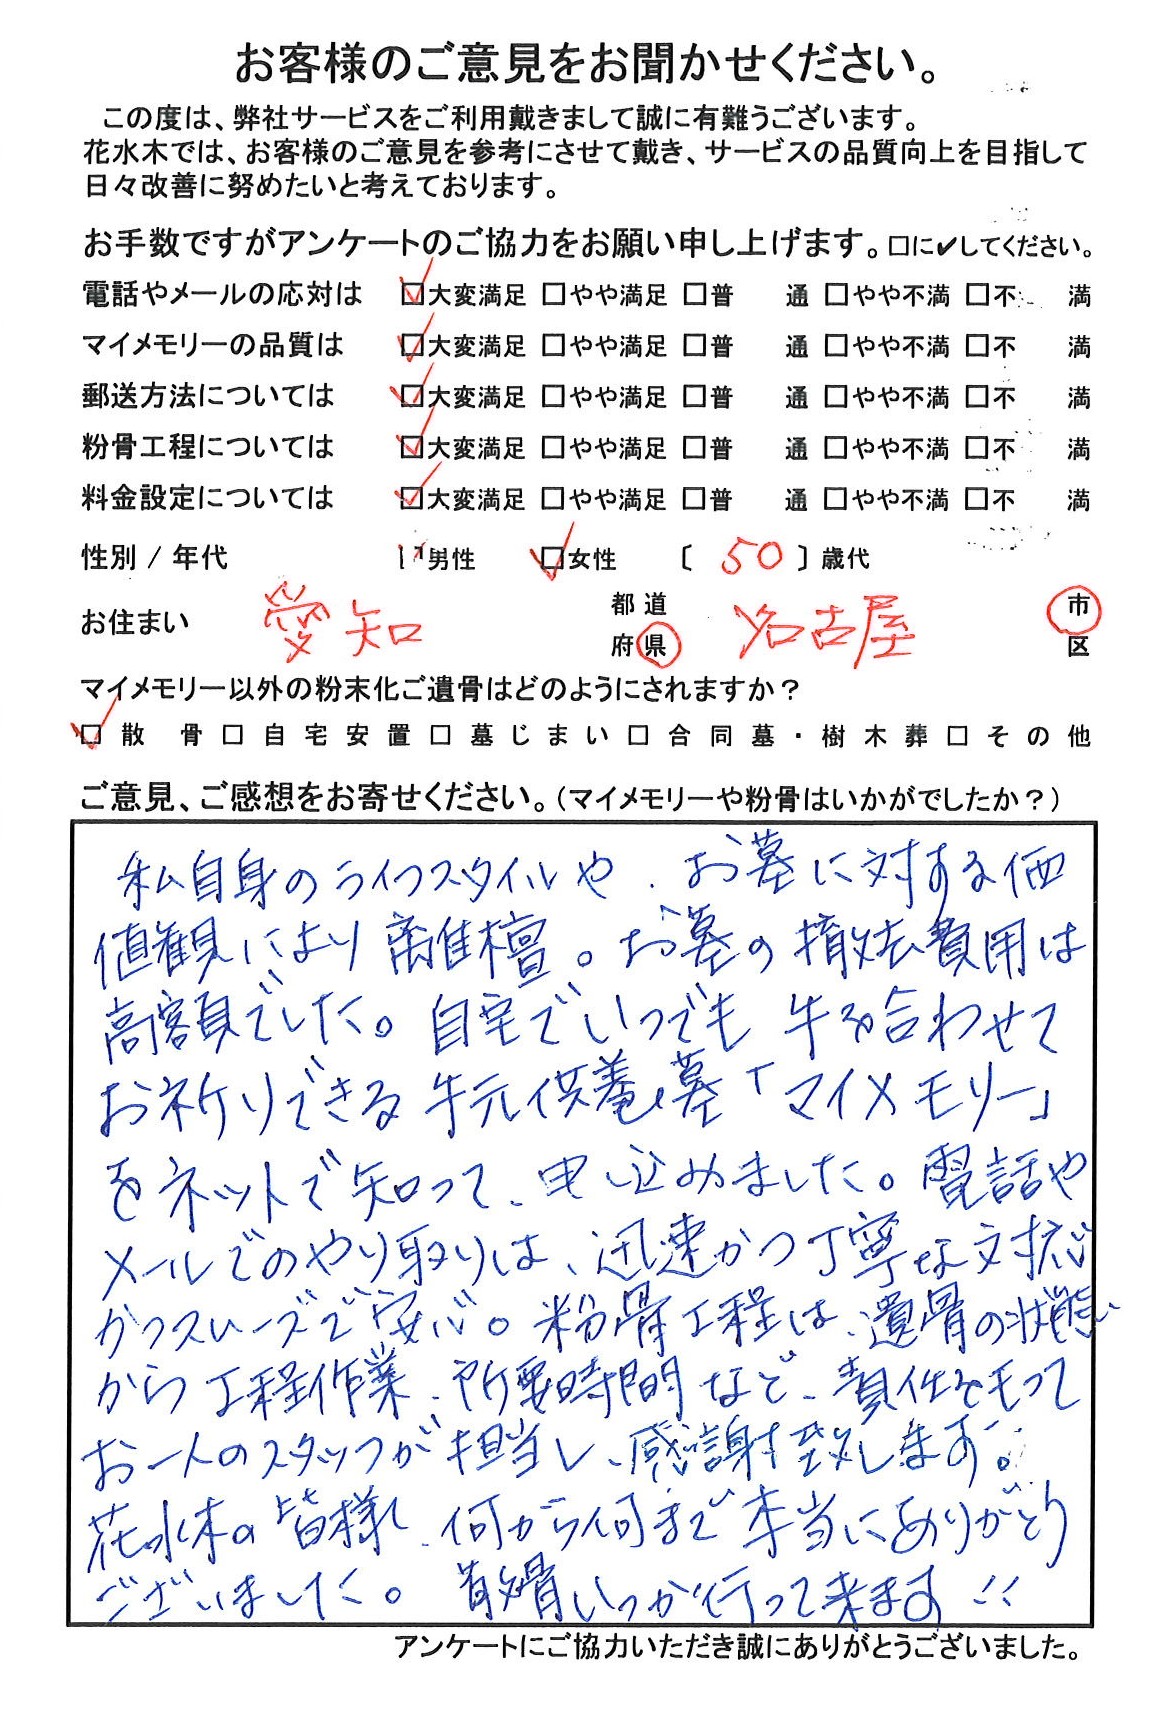 お客様のご意見をお聞かせください。
この度は、弊社サービスをご利用戴きまして誠に有難うございます。
花水木では、お客様のご意見を参考にさせて戴き、サービスの品質向上を目指して
日々改善に努めたいと考えております。
お手数ですがアンケートのご協力をお願い申し上げます。□に✓してください。
電話やメールの応対は ☑大変満足 □やや満足 □普 通 □やや不満 □不 満
マイメモリーの品質は ☑大変満足 □やや満足 □普 通 □やや不満 □不 満
郵送方法については ☑大変満足 □やや満足 □普 通 □やや不満 □不 満
粉骨工程については ☑大変満足 □やや満足 □普 通 □やや不満 □不 満
料金設定については ☑大変満足 □やや満足 □普 通 □やや不満 □不 満
性別 / 年代 □男性 ☑女性 〔 50 〕歳代
お住まい 愛知 都道府県 名古屋 市区
マイメモリー以外の粉末化ご遺骨はどのようにされますか？
☑散 骨 □自宅安置 □墓じまい □合同墓・樹木葬 □その他
ご意見、ご感想をお寄せください。（マイメモリーや粉骨はいかがでしたか？）
私自身のライフスタイルや、お墓に対する価
値観により離檀。お墓の撤去費用は
高額でした。自宅でいつでも手を合わせて
お祈りできる手元供養墓「マイメモリー」
をネットで知って、申し込めました。電話や
メールでのやり取りは、迅速かつ丁寧な対応
かつスムーズで安心。粉骨工程は、遺骨の状態
から工程作業、所要時間など、責任をもって
お一人のスタッフが担当し、感謝致します。
花水木の皆様、何から何まで本当にありがとう
ございました。散骨いつか行って来ます!!
アンケートにご協力いただき誠にありがとうございました。